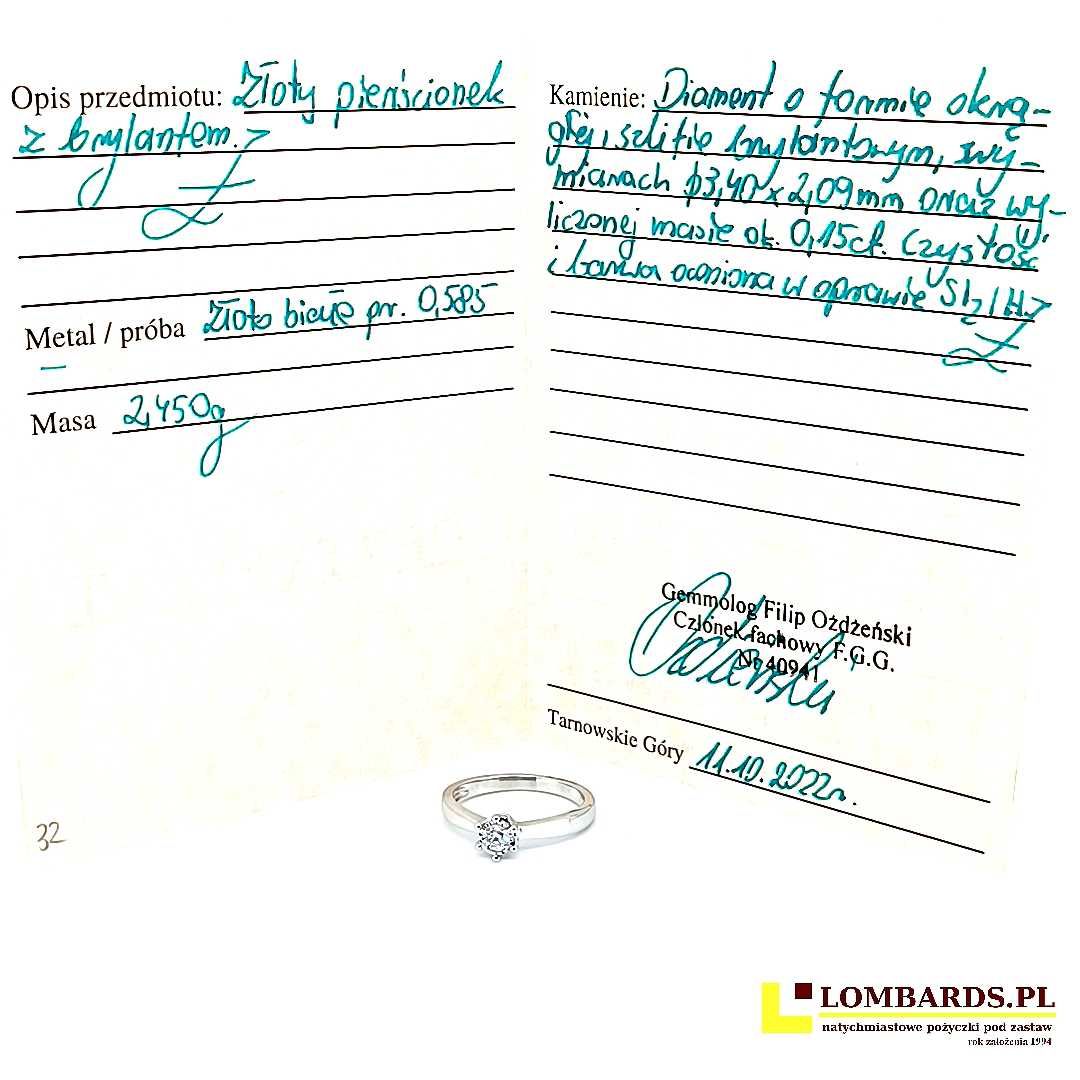 Opis przedmiotu: Złoty pierścionek
z brylantem.
Metal / próba Złoto białe pr. 0,585
Masa 2,450g
32
Kamienie: Diament o formie okrą-
głej, szlifie brylantowym, wy-
miarach ϕ3,40 x 2,09mm oraz wy-
liczonej masie ok. 0,15ct. Czystość
i barwa oceniona w oprawie SI2/H.
Gemmolog Filip Ożdżeński
Członek fachowy F.G.G.
Nr 40941
Tarnowskie Góry 11.10.2022r.
LOMBARDS.PL
natychmiastowe pożyczki pod zastaw
rok założenia 1994